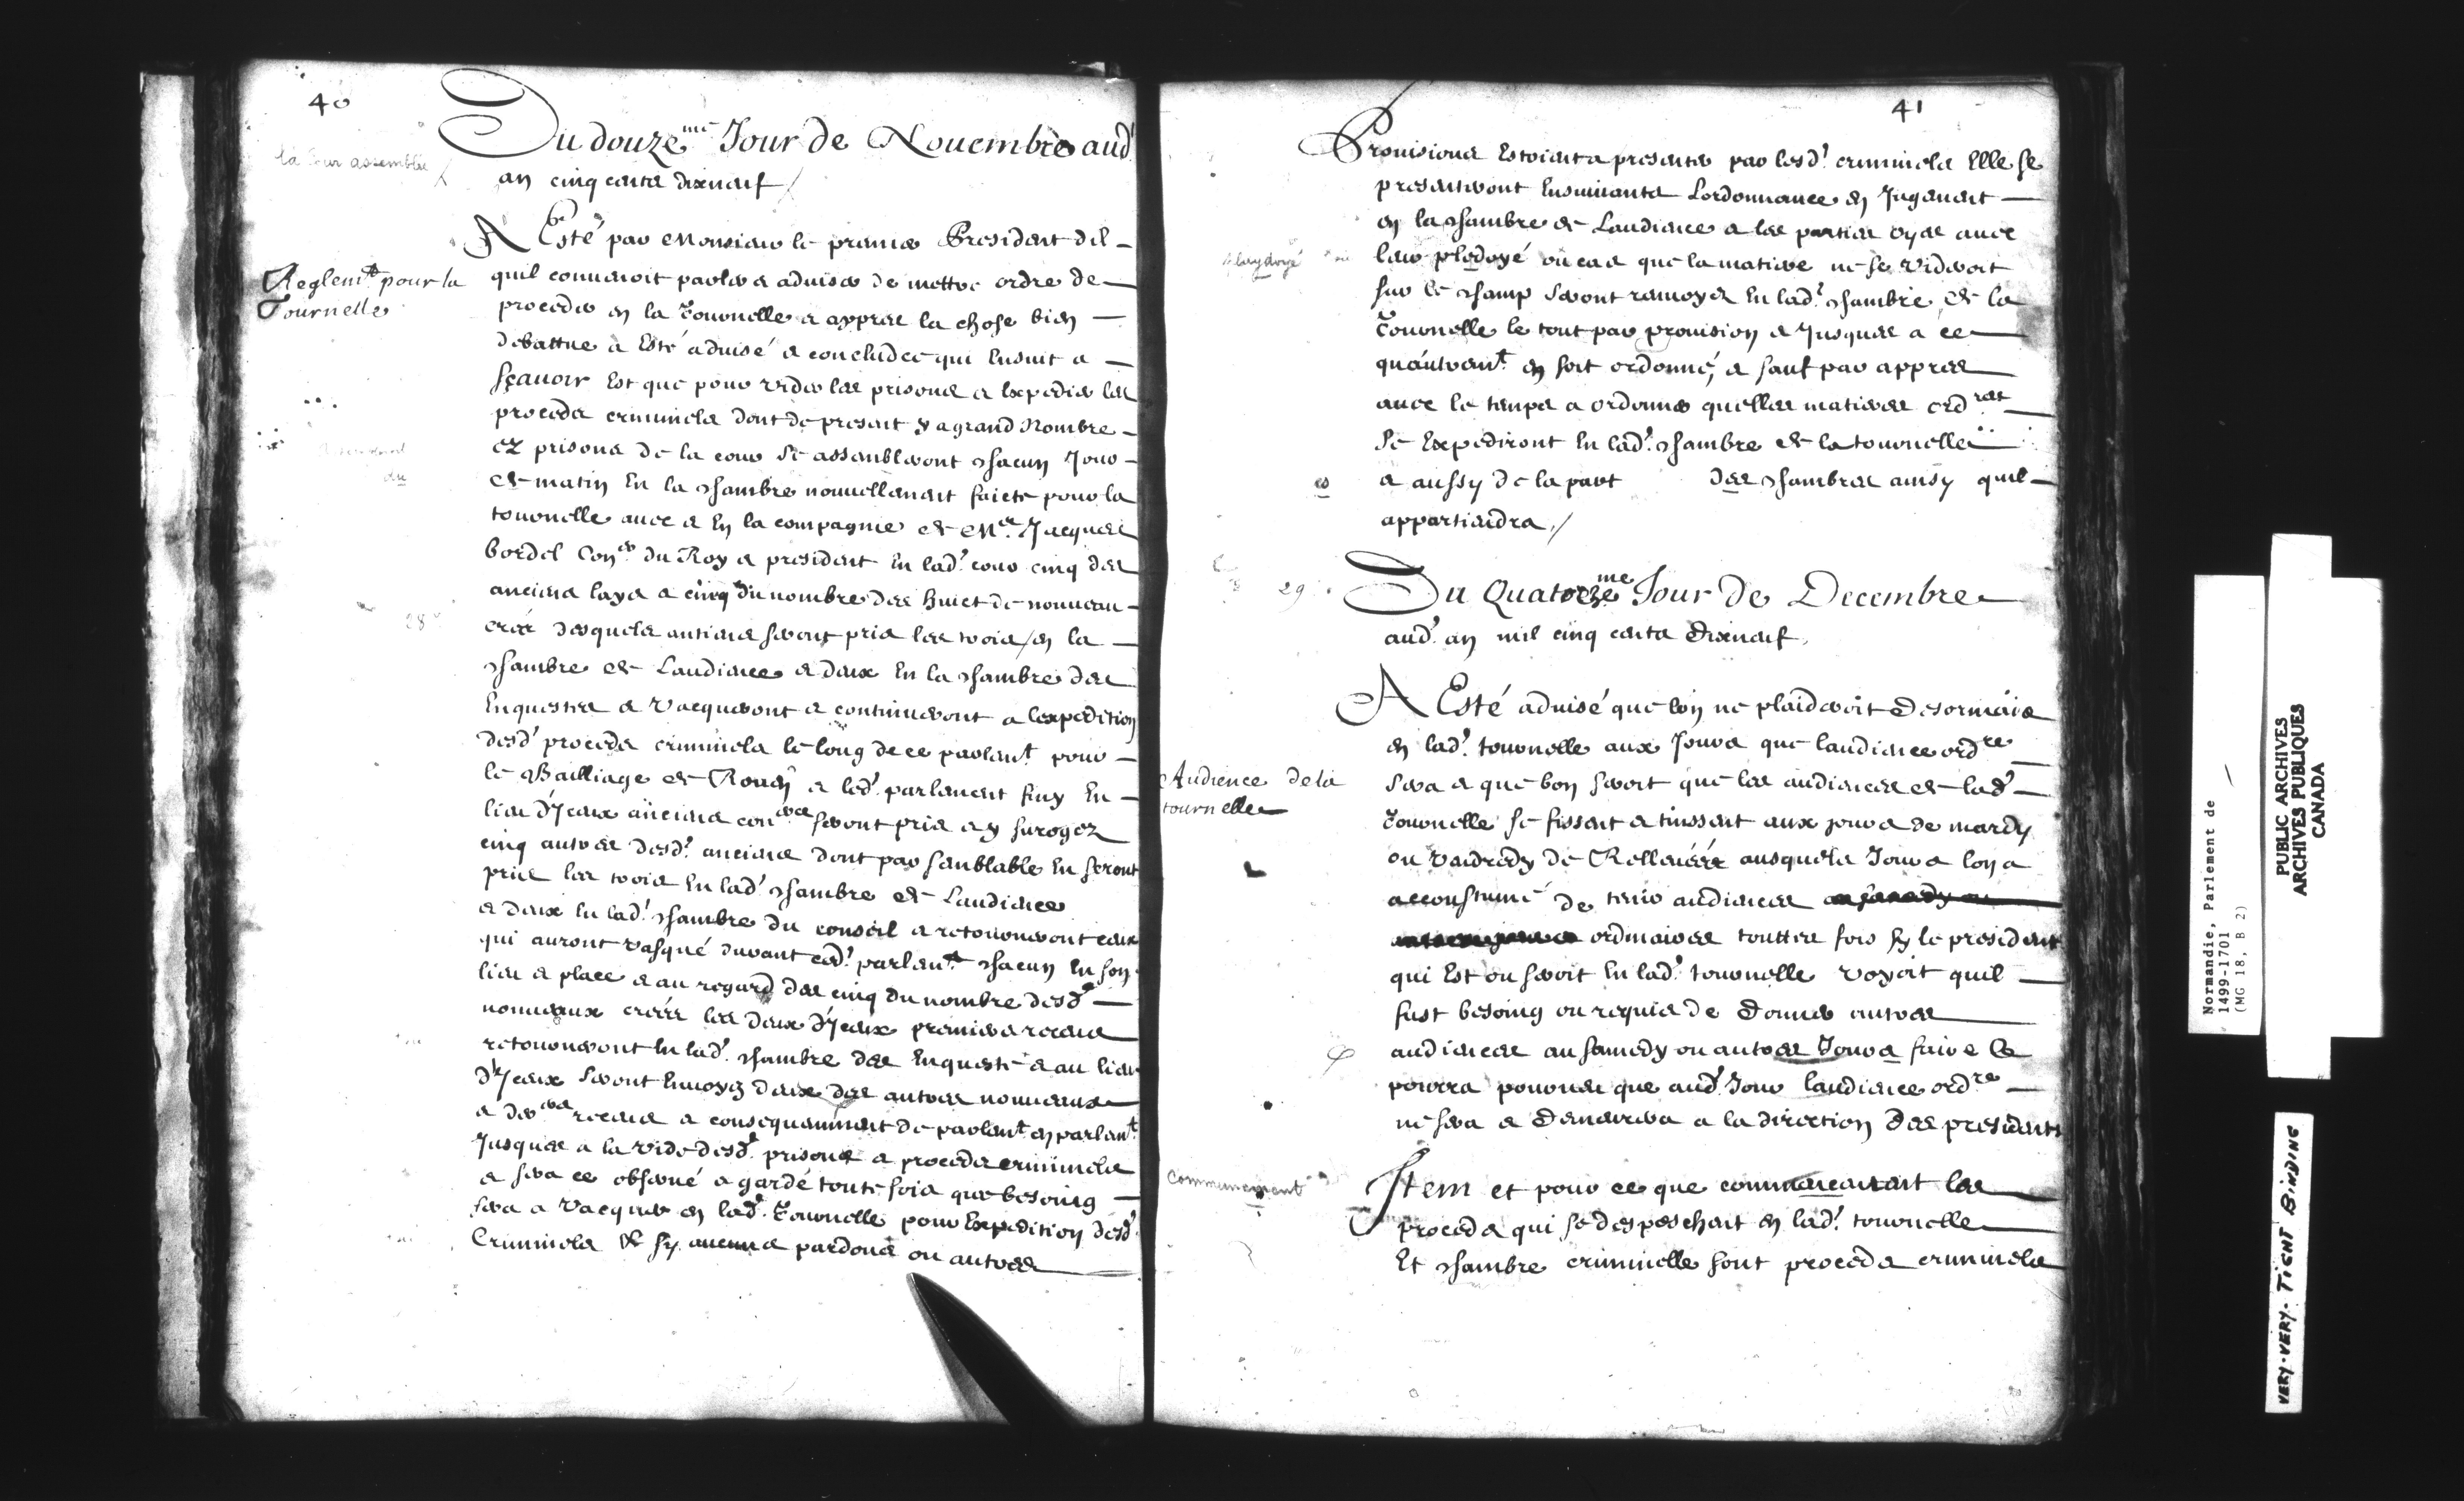 40
Du douze.me Jour de Nouembre aud.
la Cour assemblée
an cinq cents dixneuf
A Esté par Monsieur le premier President dit
Reglem.t pour la
Tournelle
quil conuenoit parler & aduiser de mettre ordre de
proceder en la Tournelle & apprez la chose bien
debattue a Esté aduisé & conclud ce qui Ensuit a
sçauoir Est que pour vider les prisons & Expedier les
procedz criminels dont de present y a grand Nombre
ez prisons de la cour se assembleront chacun Jour
de matin En la chambre nouuellement faicte pour la
tournelle auec & En la compagnie de M.e Jacques
bordel Con.er du Roy & president En lad. cour cinq des
anciens layz & cinq du nombre des huict de nouueau
creéz desquels antiens seront pris les trois en la
chambre de Laudience & deux En la chambre des
Enquestes & vacqueront & continueront a lexpedition
desd. procedz criminels le long de ce parlem.t pour
le Bailliage de Rouen & led. parlement finy En
lieu d'Jceux anciens con.ers seront pris & y surogez
cinq autres desd. anciens dont par semblable En seront
pris les trois En lad. chambre de Laudience
& deux En lad. chambre du conseil & retourneront ceux
qui auront vasqué durant ced. parlem.t chacun En son
lieu & place & au regard des cinq du nombre desd.
nouueaux creéz les deux d'Jceux premiers receus
retourneront En lad. chambre des Enquestes & au lieu
d'Jceux seront Enuoyez deux des autres nouueaux
& der.ers receus & consequamment de parlem.t en parlem.t
Jusques a la vide desd. prisons & procedz criminels
& sera ce obserué & gardé toutesfois que besoing
sera a vacquer en lad. Tournelle pour Expedition desd.
Criminels & sy aucuns pardons ou autres
28
41
Prouisions Estoient presentés par lesd. criminels Elle se
presenteront Ensuiuante Lordonnance en Jugement
en la chambre de Laudience & les parties oyes auec
playdoyé
leur pledoyé ou cas que la matiere ne se videroit
sur le champ seront renuoyez En lad. chambre de la
Tournelle le tout par prouision & Jusques a ce
quautrem.t en soit ordonné, & sauf par apprez
auec le temps a ordonner quelles matieres ord.res
se Expediront En lad. chambre de la tournelle
es
& aussy de la part des chambres ainsy quil
appartiendra
29
Du Quatorze.me Jour de Decembre
aud. an mil cinq cents dixneuf
A Esté aduisé que lon ne plaideroit desormais
en lad. tournelle aux Jours que laudience ord.re
Audience de la
tournelle
sera & que bon seroit que les audiences de lad.
Tournelle se fissent & tinssent aux jours de mardy
ou vendredy de Relleuéé ausquels Jours lon a
accoustumé de tenir audiences
ordinaires touttes fois sy le president
qui Est ou seroit En lad. tournelle voyoit quil
fust besoing ou requis de donner autres
audiences au samedy ou autres Jours faire le
pourra pourueu que aud. Jour laudience ord.re
ne sera & demeurera a la direction des presidents
communement
Item et pour ce que commencement les
procedz qui se despeschent en lad. tournelle
Et chambre criminelle sont procedz criminels
Normandie, Parlement de
1499-1701
(MG 18, B 2)
PUBLIC ARCHIVES
ARCHIVES PUBLIQUES
CANADA
VERY-VERY-TIGHT BINDING